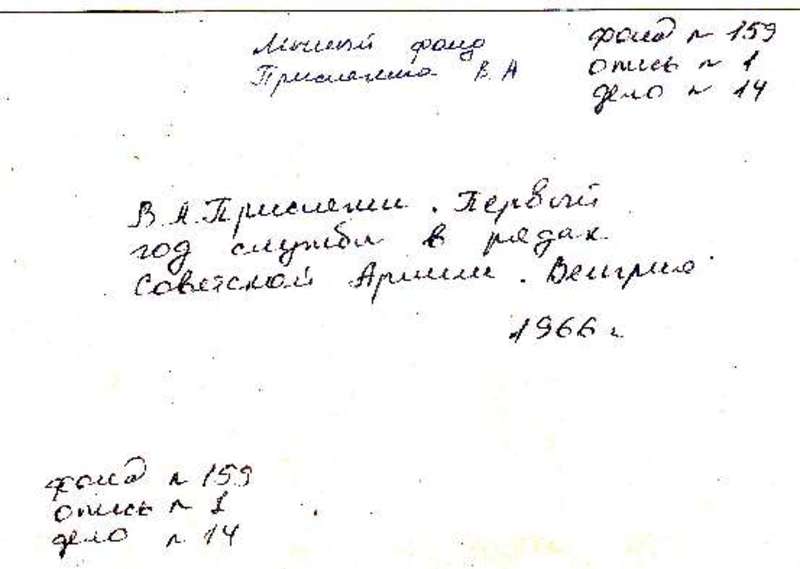 Личный фонд
В. А
фонд № 159
опись № 1
дело № 14
В. А. . Первый
год службы в рядах
Советской Армии . Венгрия
1966 г
фонд № 159
опись № 1
дело № 14